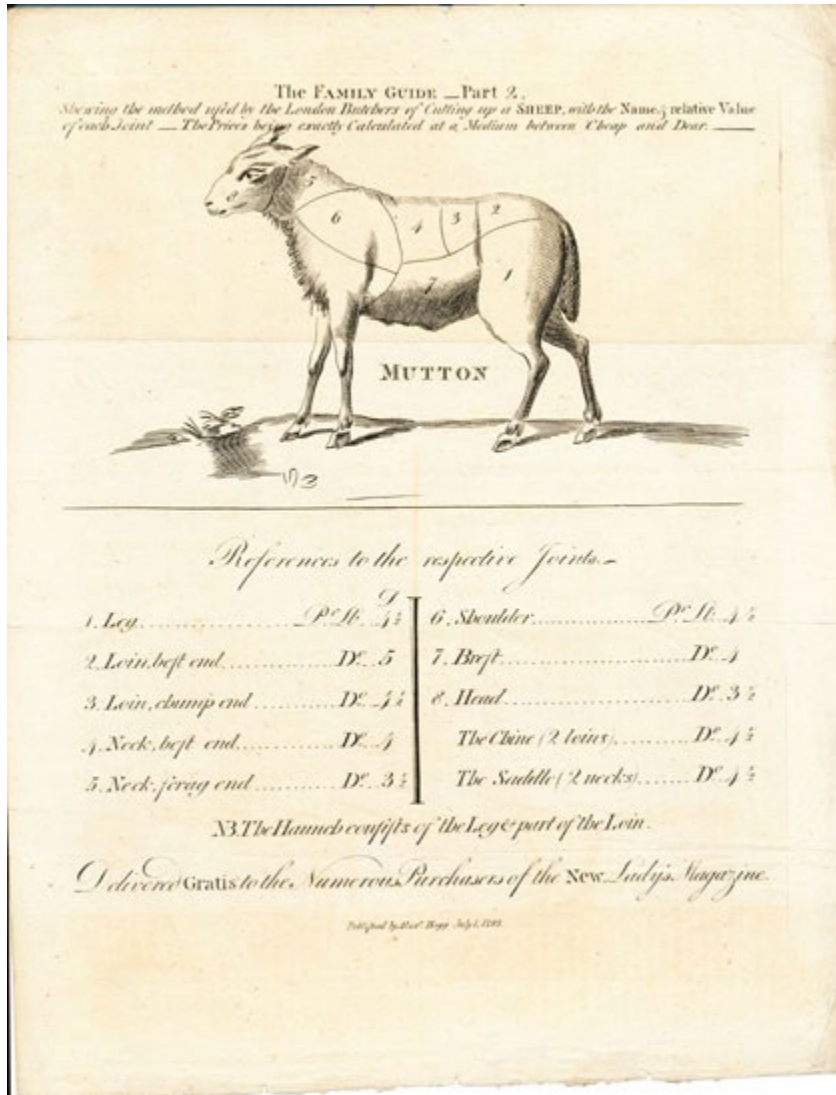 The FAMILY GUIDE — Part 2,
Shewing the method us'd by the London Butchers of Cutting up a SHEEP, with the Name, & relative Value
of each Joint — The Prices being exactly Calculated at a Medium between Cheap and Dear.
8
5
6
4
3
2
7
1
MUTTON
References to the respective Joints.
D
1. Leg ............ Pr. lb. 4½
2. Loin, best end ............ Do. 5
3. Loin, chump end ............ Do. 4½
4. Neck, best end ............ Do. 4
5. Neck, scrag end ............ Do. 3½
6. Shoulder ............ Pr. lb. 4½
7. Brest ............ Do. 4
8. Head ............ Do. 3½
The Chine (2 loins) ............ Do. 4½
The Saddle (2 necks) ............ Do. 4½
NB. The Haunch consists of the Leg & part of the Loin.
Delivered Gratis to the Numerous Purchasers of the New Lady's Magazine.
Published by Alexr. Hogg July 1,